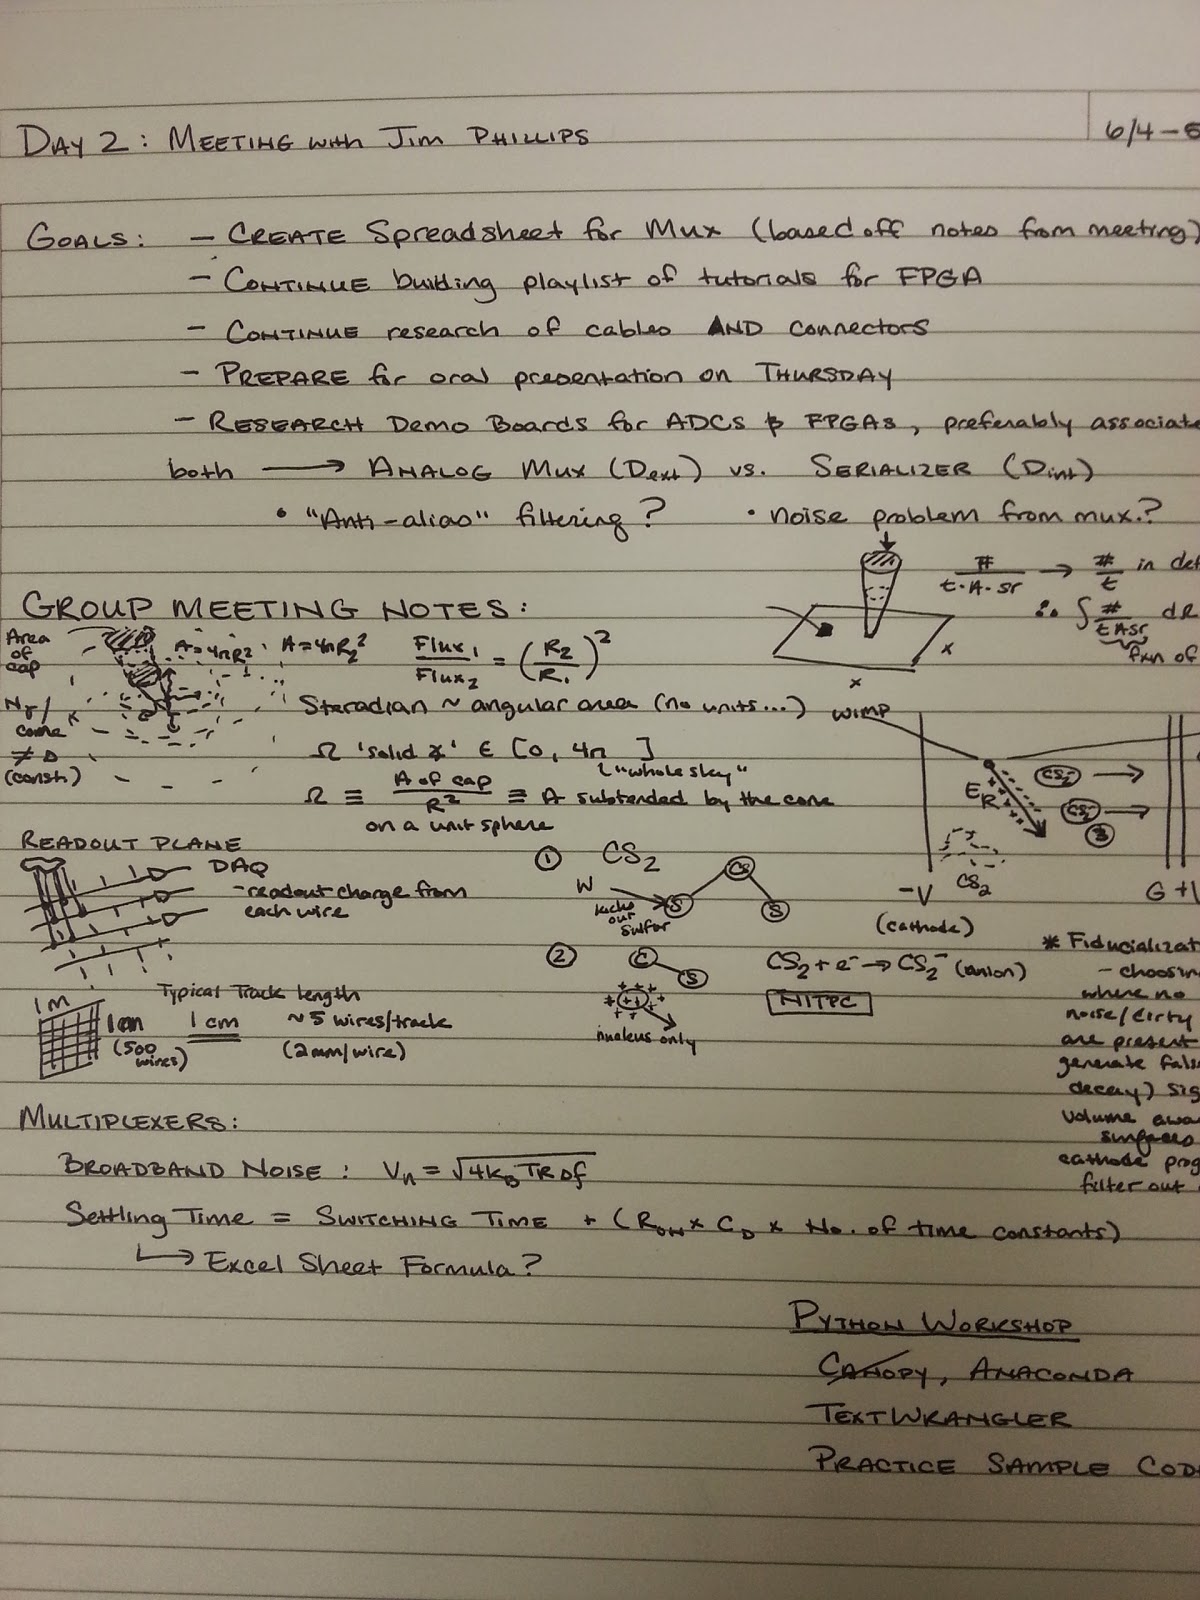 DAY 2: MEETING with JIM PHILLIPS
6/4 –
GOALS: – CREATE Spreadsheet for Mux (based off notes from meeting)
– CONTINUE building playlist of tutorials for FPGA
– CONTINUE research of cables AND connectors
– PREPARE for oral presentation on THURSDAY
– RESEARCH Demo Boards for ADCs & FPGAs, preferably associate
both → ANALOG MUX (Dext) vs. SERIALIZER (Dint)
• "Anti-alias" filtering? • noise problem from mux.?
#/t·A·sr → #/t in det
∴ ∫ #/tAsr dΩ
fxn of
GROUP MEETING NOTES:
Area of cap
A=4πR² A=4πR₂²
Flux₁/Flux₂ = (R₂/R₁)²
x
x
Nγ/cone ≠ D (const.)
Steradian ~ angular area (no units...)
Ω 'solid ∡' ∈ [0, 4π]
"whole sky"
Ω ≡ A of cap/R² ≡ A subtended by the cone
on a unit sphere
WIMP
ER
CS₂⁻ →
CS₂⁻ →
S
CS₂
-V
(cathode)
READOUT PLANE
DAQ
– readout charge from
each wire
① CS₂
W
kicks
out
sulfur
S
CS
S
② C
S
++
nucleus only
CS₂ + e⁻ → CS₂⁻ (anion)
NITPC
1m
1m
(500 wires)
Typical Track length
1cm ~5 wires/track
(2mm/wire)
* Fiducializat
– choosing
where no
noise/dirty
are present
generate fals
decay) sig
volume awa
surfaces
cathode prog
filter out
MULTIPLEXERS:
BROADBAND NOISE: Vn = √4kBTRΔf
Settling Time = SWITCHING TIME + (RON × CD × No. of time constants)
↳ Excel Sheet Formula?
PYTHON WORKSHOP
CANOPY, ANACONDA
TEXTWRANGLER
PRACTICE SAMPLE COD